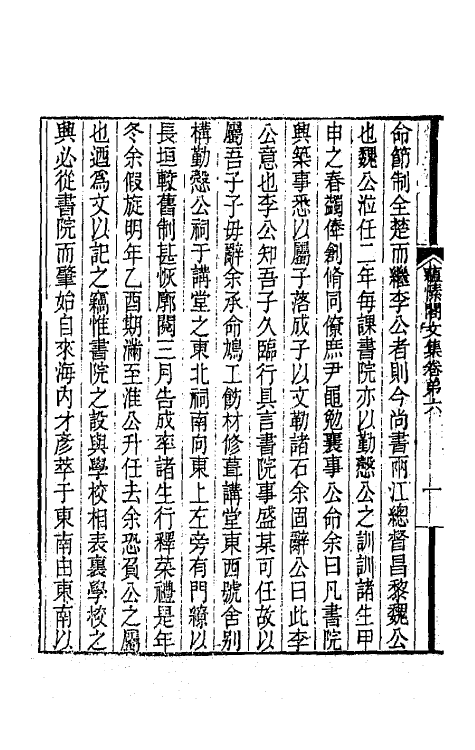 蘊愫閣文集卷第六
一
命節制全楚而繼李公者則今尚書兩江總督昌黎魏公
也魏公涖任二年每課書院亦以勤慤公之訓訓諸生甲
申之春蠲俸創脩同僚庶尹黽勉襄事公命余曰凡書院
興築事悉以屬子落成子以文勒諸石余固辭公曰此李
公意也李公知吾子久臨行具言書院事盛某可任故以
屬吾子子毋辭余承命鳩工飭材修葺講堂東西號舍别
構勤慤公祠于講堂之東北祠南向東上左旁有門繚以
長垣較舊制甚恢廓閱三月告成率諸生行釋菜禮是年
冬余假旋明年乙酉期滿至淮公升任去余恐負公之屬
也迺爲文以記之竊惟書院之設與學校相表裏學校之
興必從書院而肇始自來海内才彦萃于東南由東南以